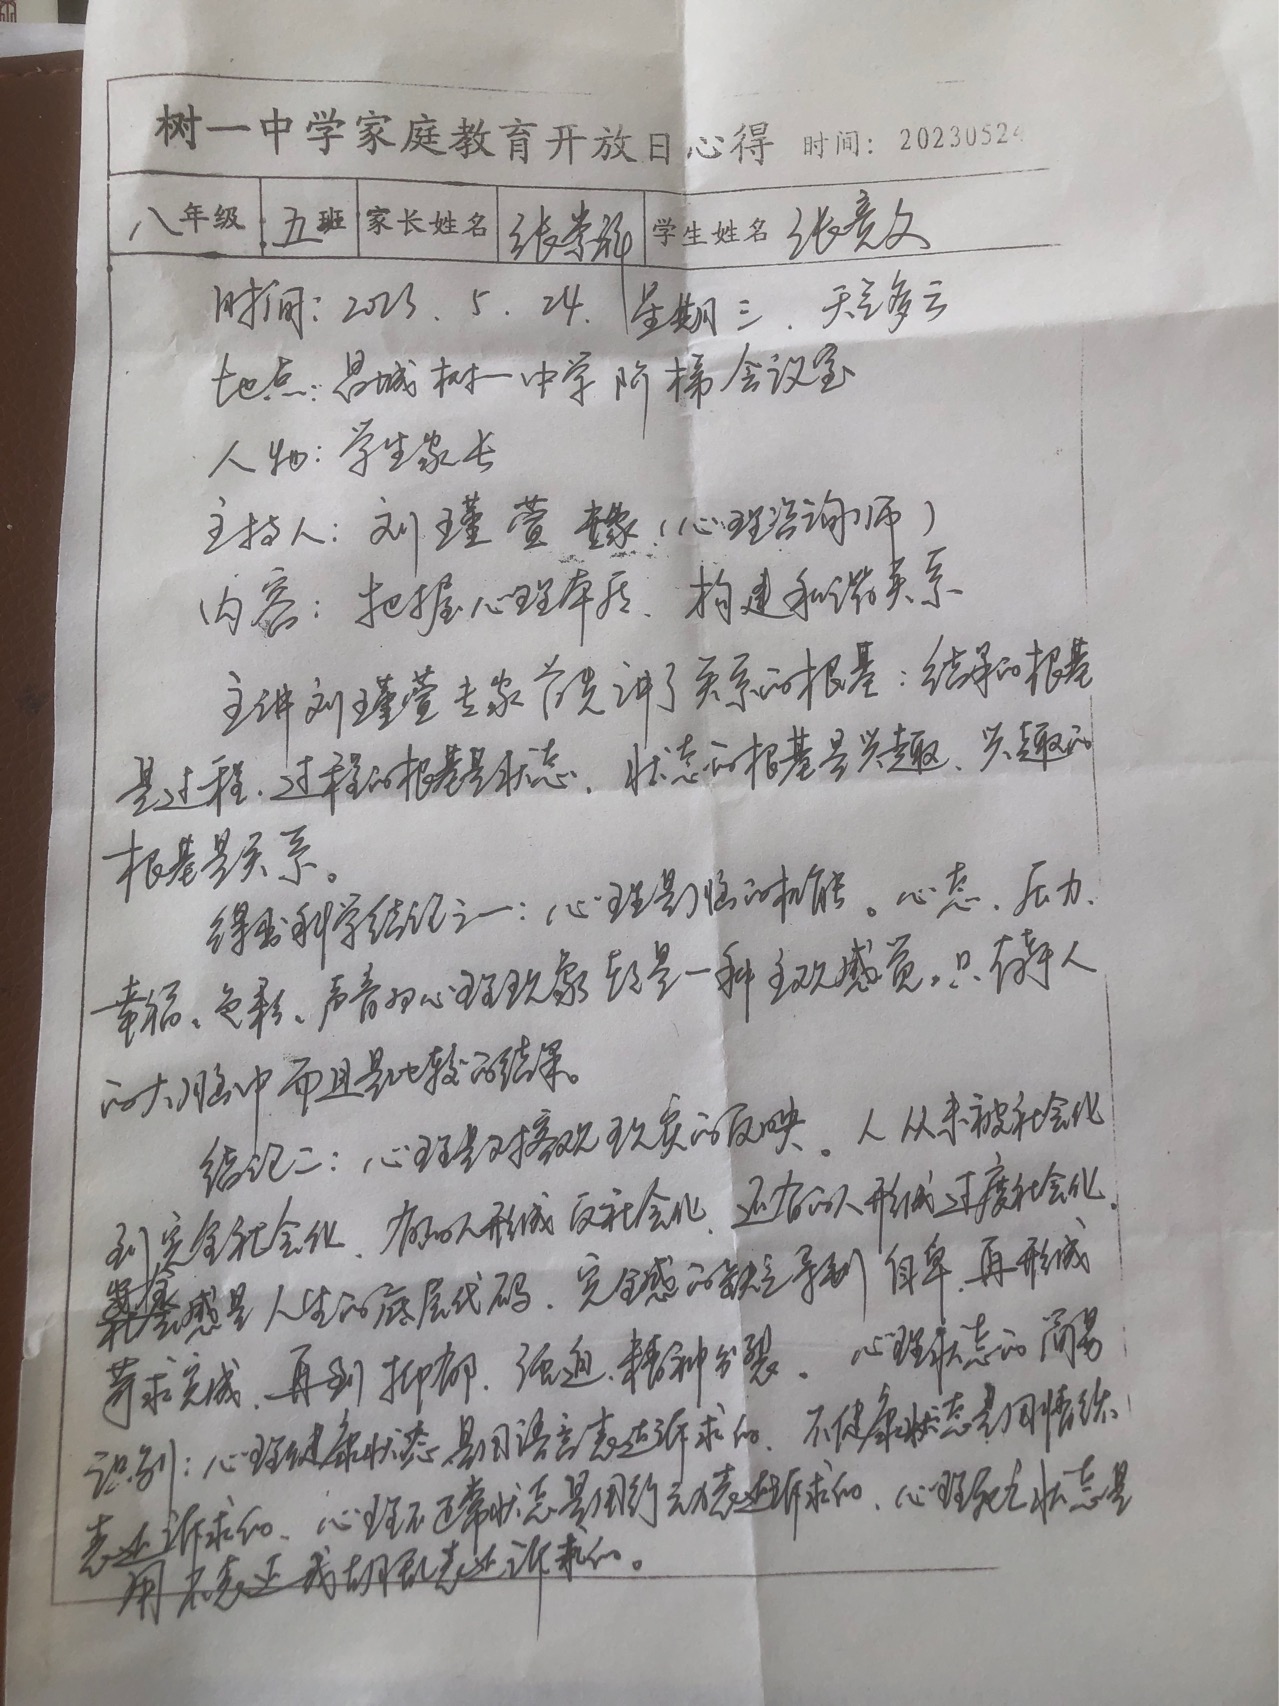 树一中学家庭教育开放日心得 时间：20230524
八年级 五班 家长姓名 张崇 学生姓名 张彦文
时间：2023.5.24.星期三.天气多云
地点：昌城树一中学阶梯会议室
人物：学生家长
主持人：刘瑾萱专家（心理咨询师）
内容：把握心理本质、构建和谐关系
主讲刘瑾萱专家首先讲了关系的根基：结果的根基
是过程、过程的根基是状态、状态的根基是兴趣、兴趣的
根基是关系。
得出科学结论之一：心理是脑的机能。心态、压力、
幸福、色彩、声音的心理现象都是一种主观感觉。只存于人
的大脑中而且是比较的结果。
结论二：心理是对客观现实的反映。人从未被社会化
到完全社会化、有的人形成反社会化、还有的人形成过度社会化。
安全感是人生的底层代码、完全感的缺乏导到自卑、再形成
苛求完成、再到抑郁、强迫、精神分裂。心理状态的简易
识别：心理健康状态是用语言表达诉求的、不健康状态是用情绪
表达诉求的、心理不正常状态是用行动表达诉求的、心理死亡状态是
用不表达或胡乱表达诉求的。